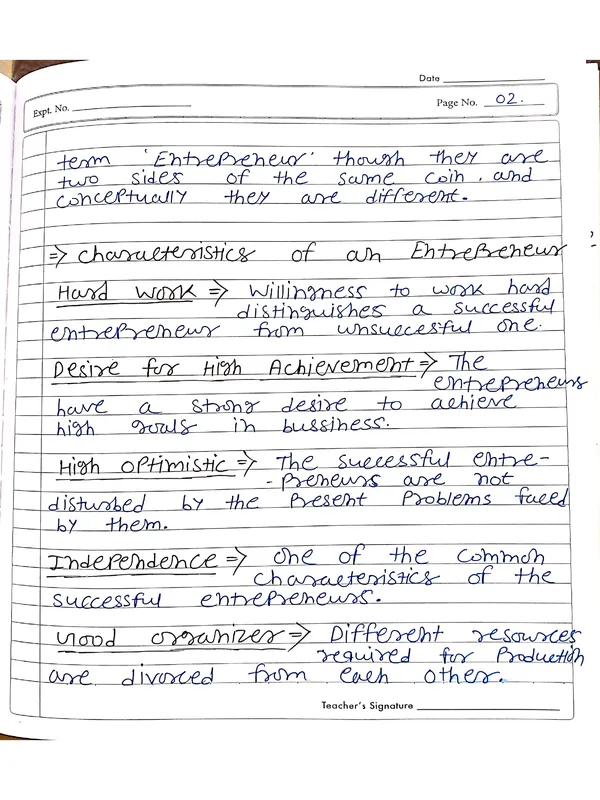 Date
Expt. No.
Page No. 02.
term 'Entrepreneur' though they are
two sides of the same coin. and
conceptually they are different.
=> Characteristics of an Entrepreneur
Hard work => Willingness to work hard
distinguishes a successful
entrepreneur from unsuecesful one.
Desire for High Achievement => The
entrepreneurs
have a strong desire to achieve
high goals in bussiness.
High optimistic => The successful entre-
-preneurs are not
disturbed by the present problems faced
by them.
Independence => One of the common
characteristics of the
successful entrepreneurs.
Good organizer => Different resources
required for production
are divorced from each other.
Teacher's Signature